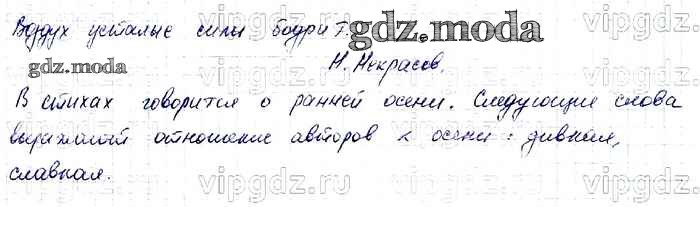 Воздух усталые силы бодрит.
gdz.moda
gdz.moda
Н. Некрасов.
В стихах говорится о ранней осени. Следующие слова
выражают отношение авторов к осени: дивная,
славная.
vipgdz.ru
vipgdz.ru
vipgdz.ru
vipgdz.ru
vipgdz.ru
vipgdz.ru